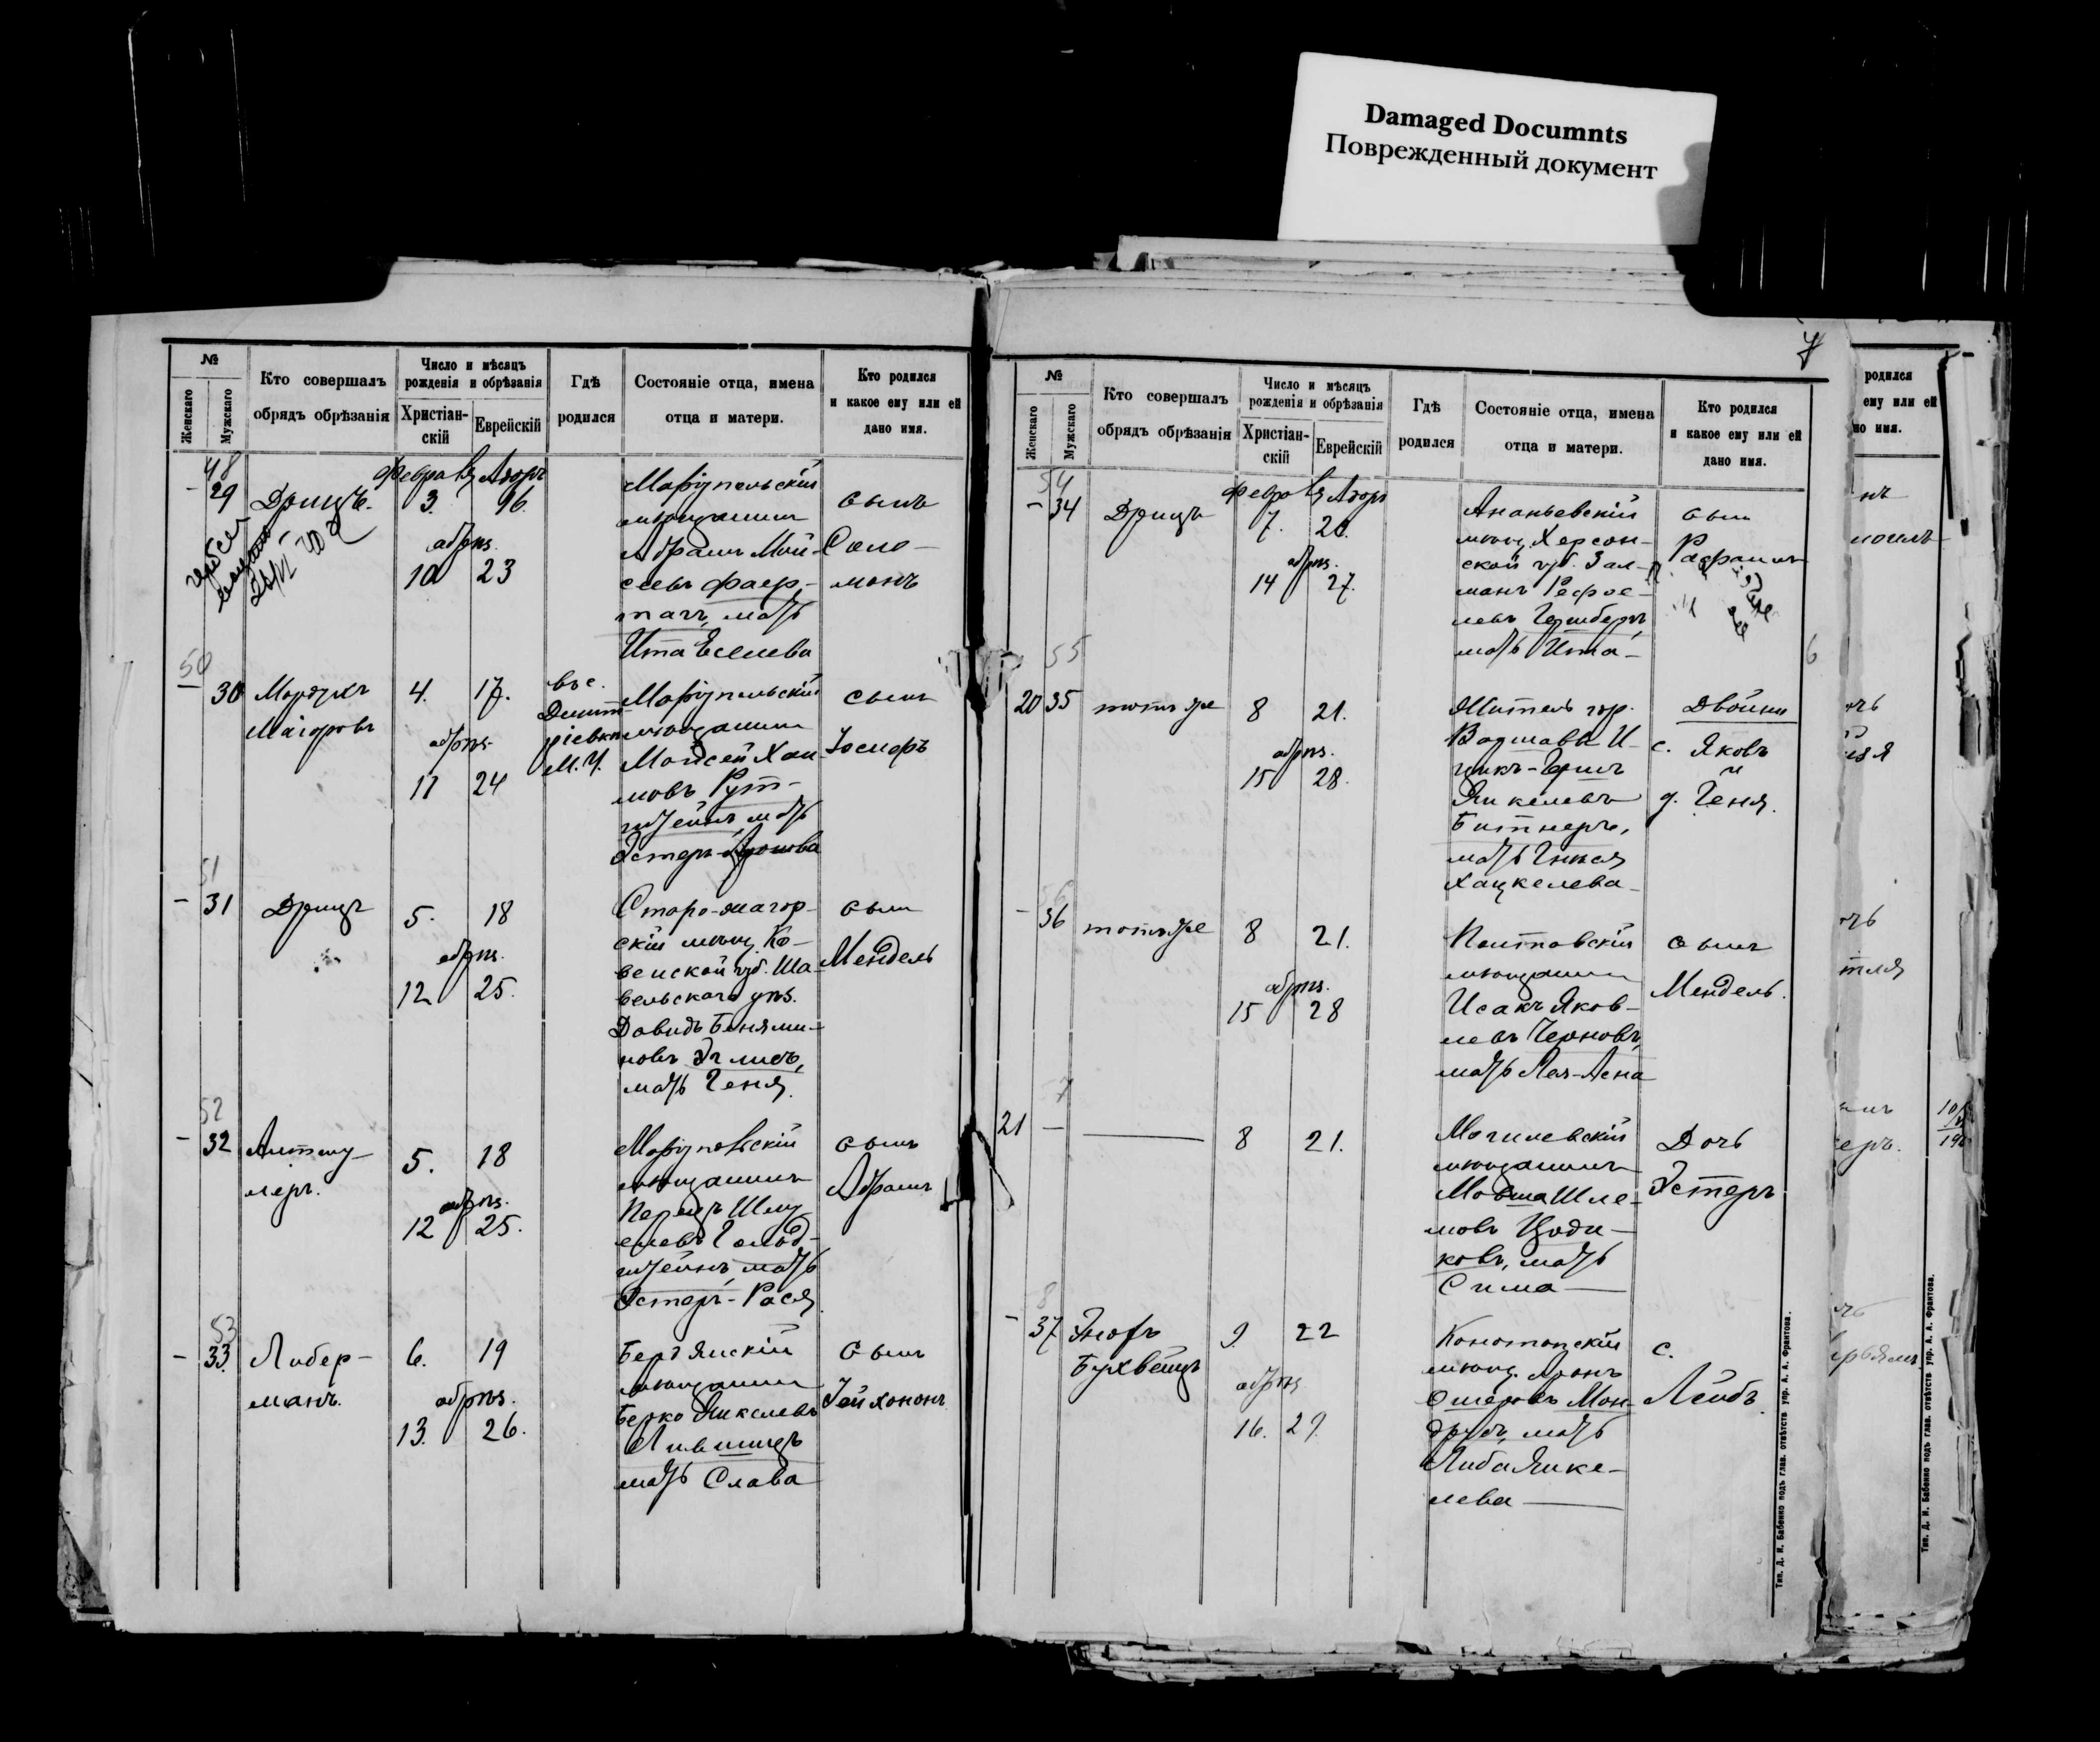 Damaged Documnts
Поврежденный документ
№
Женскаго
Мужскаго
Кто совершалъ
обрядъ обрѣзанія
Число и мѣсяцъ
рожденія и обрѣзанія
Христіан-
скій
Еврейскій
Гдѣ
родился
Состояніе отца, имена
отца и матери.
Кто родился
и какое ему или ей
дано имя.
48
- 29
Дрицъ.
Февра
Адоръ
3.
16.
обрѣз.
10 23
Маріупольскій
мѣщанинъ
Абрамъ Мой-
сеевъ Фаер-
тагъ, мать
Ита Евсеева
сынъ
Соло-
монъ
50
30
Мордухъ
Маіоровъ
4. 17.
обрѣз.
11 24
въ с.
Дмит-
ріевкѣ
М. У.
Маріупольскій
мѣщанинъ
Мойсей Хаи-
мовъ Рут-
штейнъ, мать
Эстеръ-Аронова
сынъ
Іосифъ
51
- 31
Дрицъ
5. 18
обрѣз.
12 25.
Старо-жагор-
скій мѣщ. Ко-
венской губ. Ша-
вельскаго уѣз.
Давидъ Бенями-
новъ
мать Геня.
сынъ
Мендель
52
- 32
Альтшу-
леръ.
5. 18
обрѣз.
12 25.
Маріупольскій
мѣщанинъ
Перецъ Шму-
елевъ Гольд-
штейнъ, мать
Эстеръ-Рася
сынъ
Абрамъ
53
- 33.
Либер-
манъ.
6. 19
обрѣз.
13. 26.
Бердянскій
мѣщанинъ
Берко Янкелевъ
Лившицъ
мать Слава
сынъ
7
№
Женскаго
Мужскаго
Кто совершалъ
обрядъ обрѣзанія
Число и мѣсяцъ
рожденія и обрѣзанія
Христіан-
скій
Еврейскій
Гдѣ
родился
Состояніе отца, имена
отца и матери.
Кто родился
и какое ему или ей
дано имя.
54
- 34
Дрицъ
Февра
Адоръ
7. 20.
обрѣз.
14 27.
Ананьевскій
мѣщ. Херсон-
ской губ. Зал-
манъ
левъ Гершбергъ,
мать Ита-
сынъ
55
20 35
тотъ же
8 21.
обрѣз.
15 28.
Житель гор.
Варшавы И-
цикъ-Гершъ
Янкелевъ
Битнеръ,
мать
Хацкелева-
Двойни
с. Яковъ
и
д. Геня.
56
- 36
тотъ же
8 21.
обрѣз.
15 28
Полтавскій
мѣщанинъ
Исакъ Яков-
левъ Черновъ,
мать
сынъ
Мендель.
7
21 -
8 21.
Могилевскій
мѣщанинъ
Мовша Шле-
мовъ Цоди-
ковъ, мать
Сима
Дочь
Эстеръ
8
- 37
Бухвейцъ
9. 22
обрѣз
16. 29.
Конотопскій
мѣщ. Аронъ
Ошеровъ Мон-
друсъ, мать
Либа Янке-
лева
с.
Лейбъ.
Тип. Д. И. Бабенко подъ глав. отвѣтств упр. А. А. Франтова.
родился
ему или ей
но имя.
Тип. Д. И. Бабенко подъ глав. отвѣтств упр. А. А. Франтова.